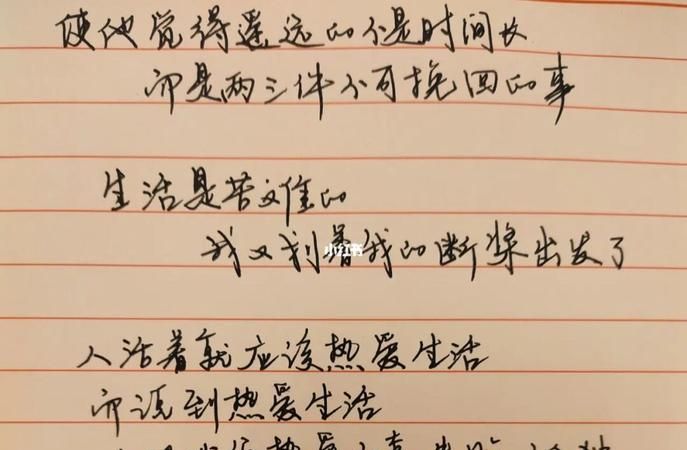 使他觉得遥远的不是时间长
而是两三件不可挽回的事
生活是苦难的
我又划着我的断桨出发了
小红书
人活着就应该热爱生活
而说到热爱生活